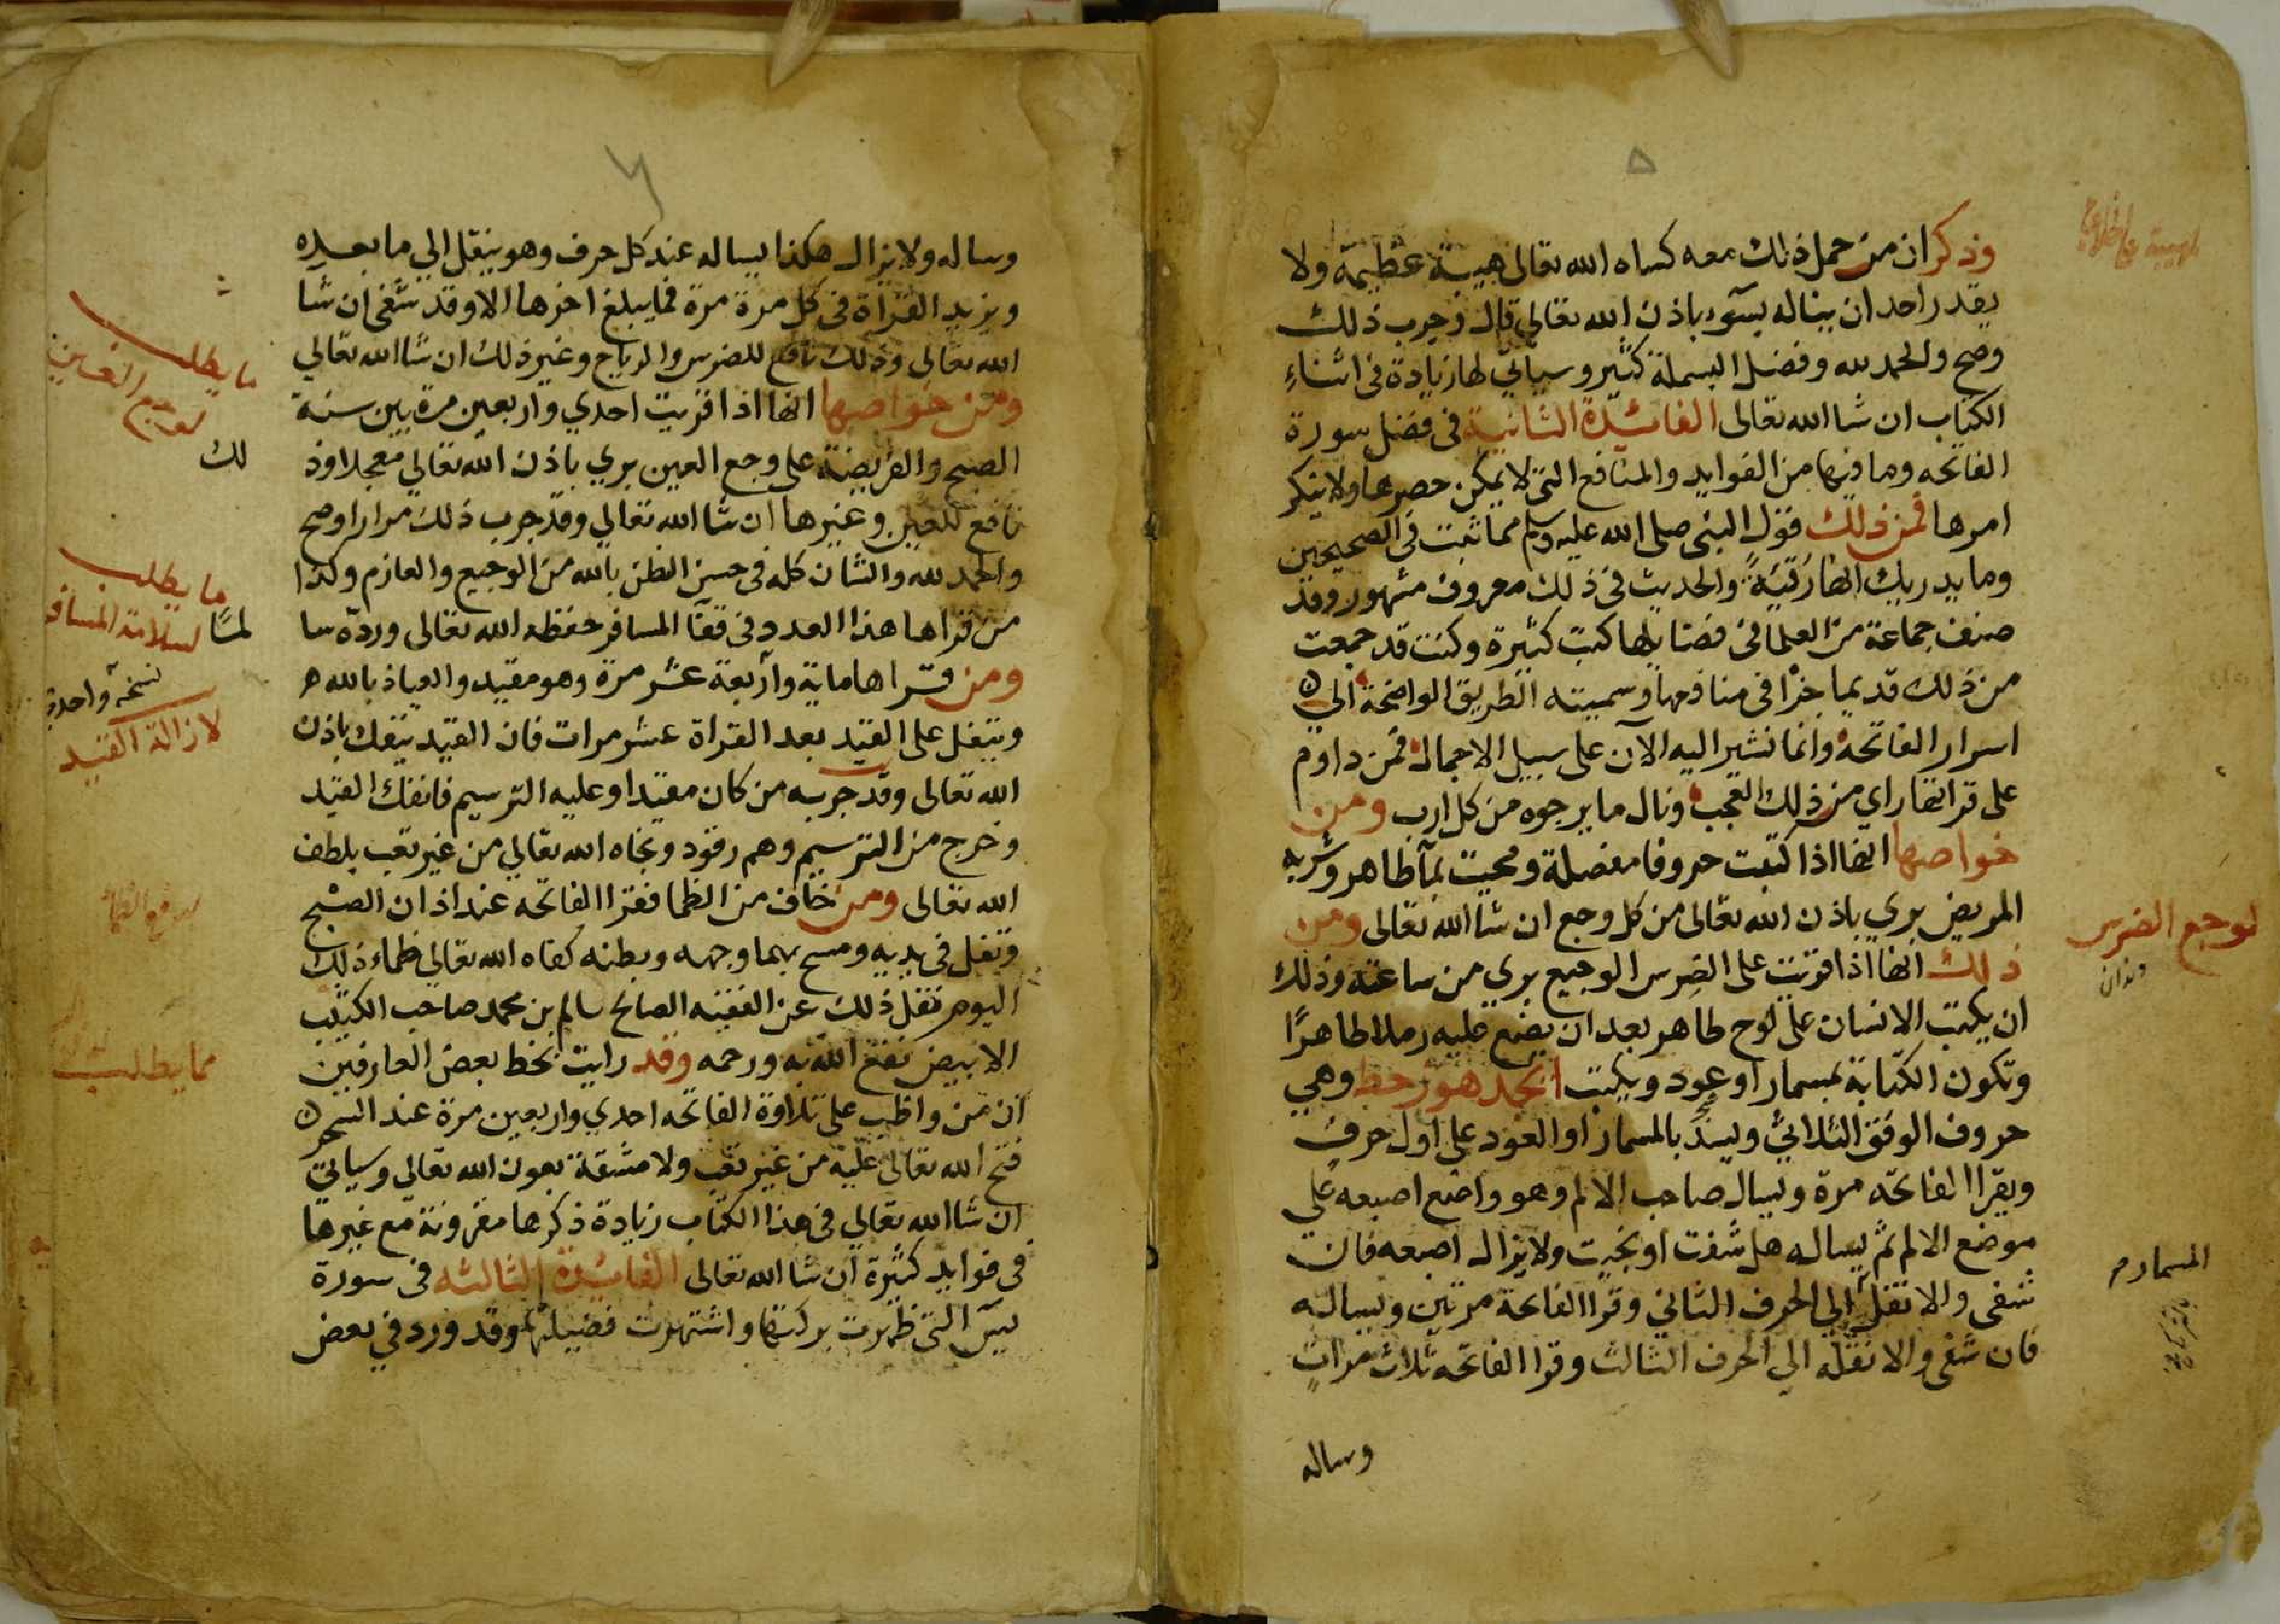 ٥
وذكر ان من حمل ذلك معه كساه الله تعالى هيبة عظيمة ولا
يقدر احد ان يناله بسوء باذن الله تعالى قال وجرب ذلك
وصح والحمد لله وفضل البسملة كثير وسياتي لها زيادة في اثناء
الكتاب ان شا الله تعالى الفائدة الثانية في فضل سورة
الفاتحه وما فيها من الفوايد والمنافع التي لا يمكن حصرها ولا ينكر
امرها فمن ذلك قول النبي صلى الله عليه وسلم مما ثبت في الصحيحين
وما يدريك انها رقية والحديث في ذلك معروف مشهور وقد
صنف جماعة من العلما في فضايلها كتب كثيرة وكنت قد جمعت
من ذلك قديما جزا في منافعها وسميته الطريق الواضحة الى
اسرار الفاتحة وانما نشير اليه الآن على سبيل الاجمال فمن داوم
على قراتها راي من ذلك العجب ونال ما يرجوه من كل ارب ومن
خواصها انها اذا كتبت حروفا مفصلة ومحيت بمآ طاهر وشربه
المريض بري باذن الله تعالى من كل وجع ان شا الله تعالى ومن
ذلك انها اذا قريت على الضرس الوجيع بري من ساعته وذلك
ان يكتب الانسان على لوح طاهر بعد ان يضع عليه رملا طاهرًا
وتكون الكتابة بمسمار او عود ويكتب ابجد هوز حط وهي
حروف الوفق الثلاثي ويسند بالمسمار او العود على اول حرف
ويقرا الفاتحه مرة ويسال صاحب الالم وهو واضع اصبعه على
موضع الالم ثم يساله هل شفيت او نجيت ولا يزال اصبعه فان
شفى والا نقل الى الحرف الثاني وقرا الفاتحة مرتين ويساله
فان شفى والا نقله الي الحرف الثالث وقرا الفاتحه ثلاث مرات
وساله
لوجع الضرس
المسمار
٦
وساله ولا يزال هكذا يساله عند كل حرف وهو ينقل الي ما بعده
ويزيد القراة في كل مرة مرة فما يبلغ اخرها الا وقد شفي ان شا
الله تعالى وذلك نافع للضرس والرياح وغير ذلك ان شا الله تعالي
ومن خواصها انها اذا قريت احدي واربعين مرة بين سنة
الصبح والفريضة على وجع العين بري باذن الله تعالي معجلا وذ
لك
نافع للعين وغيرها ان شا الله تعالي وقد جرب ذلك مرارا وصح
والحمد لله والشان كله في حسن الظن بالله من الوجيع والعازم وكذا
من قراها هذا العدد في قفآ المسافر حفظه الله تعالى وردّه سا
لمًا
ومن قراها ماية واربعة عشر مرة وهو مقيد والعياذ بالله
ويتفل على القيد بعد القراة عشر مرات فان القيد ينفك باذن
الله تعالى وقد جربه من كان مقيدا وعليه الترسيم فانفك القيد
وخرج من الترسيم وهم رقود ونجاه الله تعالي من غير تعب بلطف
الله تعالى ومن خاف من الظما فقرا الفاتحه عند اذان الصبح
وتفل في يديه ومسح بهما وجهه وبطنه كفاه الله تعالي ظماء ذلك
اليوم نقل ذلك عن الفقيه الصالح سالم بن محمد صاحب الكثيب
الابيض نفع الله به ورحمه وقد رايت بخط بعض العارفين
ان من واظب على تلاوة الفاتحه احدي واربعين مرة عند السحر
فتح الله تعالى عليه من غير تعب ولا مشقة بعون الله تعالي وسياتي
ان شا الله تعالي في هذا الكتاب زيادة ذكرها مقرونة مع غيرها
في فوايد كثيرة ان شا الله تعالى الفائدة الثالثه في سورة
يسٓ التي ظهرت بركتها واشتهرت فضيلتها وقد ورد في بعض
ما يطلب
ما يطلب
لسلامة المسافر
نسخة واحدة
لازالة القيد
مما يطلب